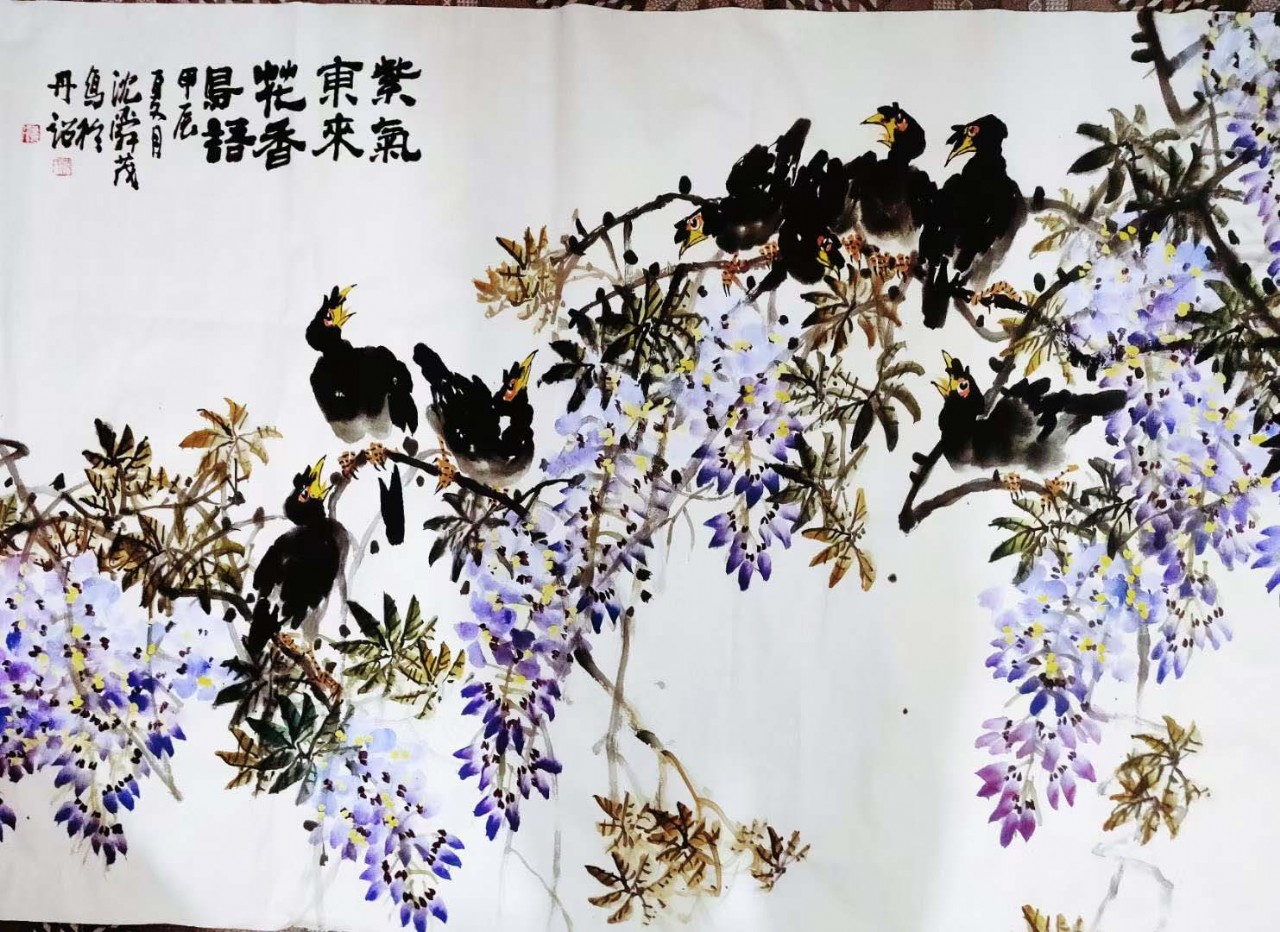 紫氣
東來
花香
鳥語
甲辰
夏月
沈舜茂
寫於
丹詔